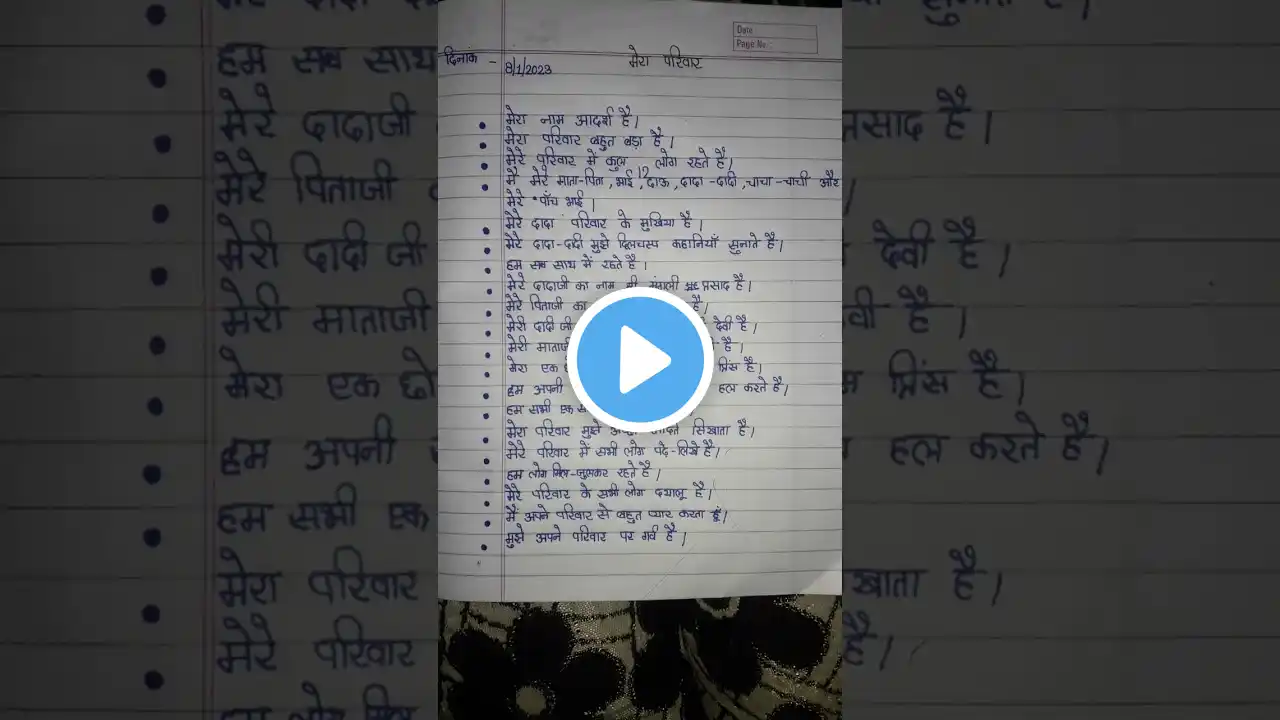 Date
Page No.
दिनांक - 8/1/2023
मेरा परिवार
मेरा नाम आदर्श है।
मेरा परिवार बहुत बड़ा है।
मेरे परिवार में कुल 12 लोग रहते हैं।
मैं मेरे माता-पिता, भाई, दाऊ, दादा-दादी, चाचा-चाची और
मेरे पाँच भाई।
मेरे दादा परिवार के मुखिया है।
मेरे दादा-दादी मुझे दिलचस्प कहानियाँ सुनाते है।
हम सब साथ में रहते है।
मेरे दादाजी का नाम प्रसाद है।
मेरे पिताजी का है।
मेरी दादी जी देवी है।
मेरी माताजी है।
मेरा एक प्रिंस है।
हम अपनी हल करते है।
हम सभी एक
मेरा परिवार मुझे सिखाता है।
मेरे परिवार में सभी लोग पढे-लिखे है।
हम लोग मिल-जुलकर रहते है।
मेरे परिवार के सभी लोग दयालू है।
मैं अपने परिवार से बहुत प्यार करता हूँ।
मुझे अपने परिवार पर गर्व है।